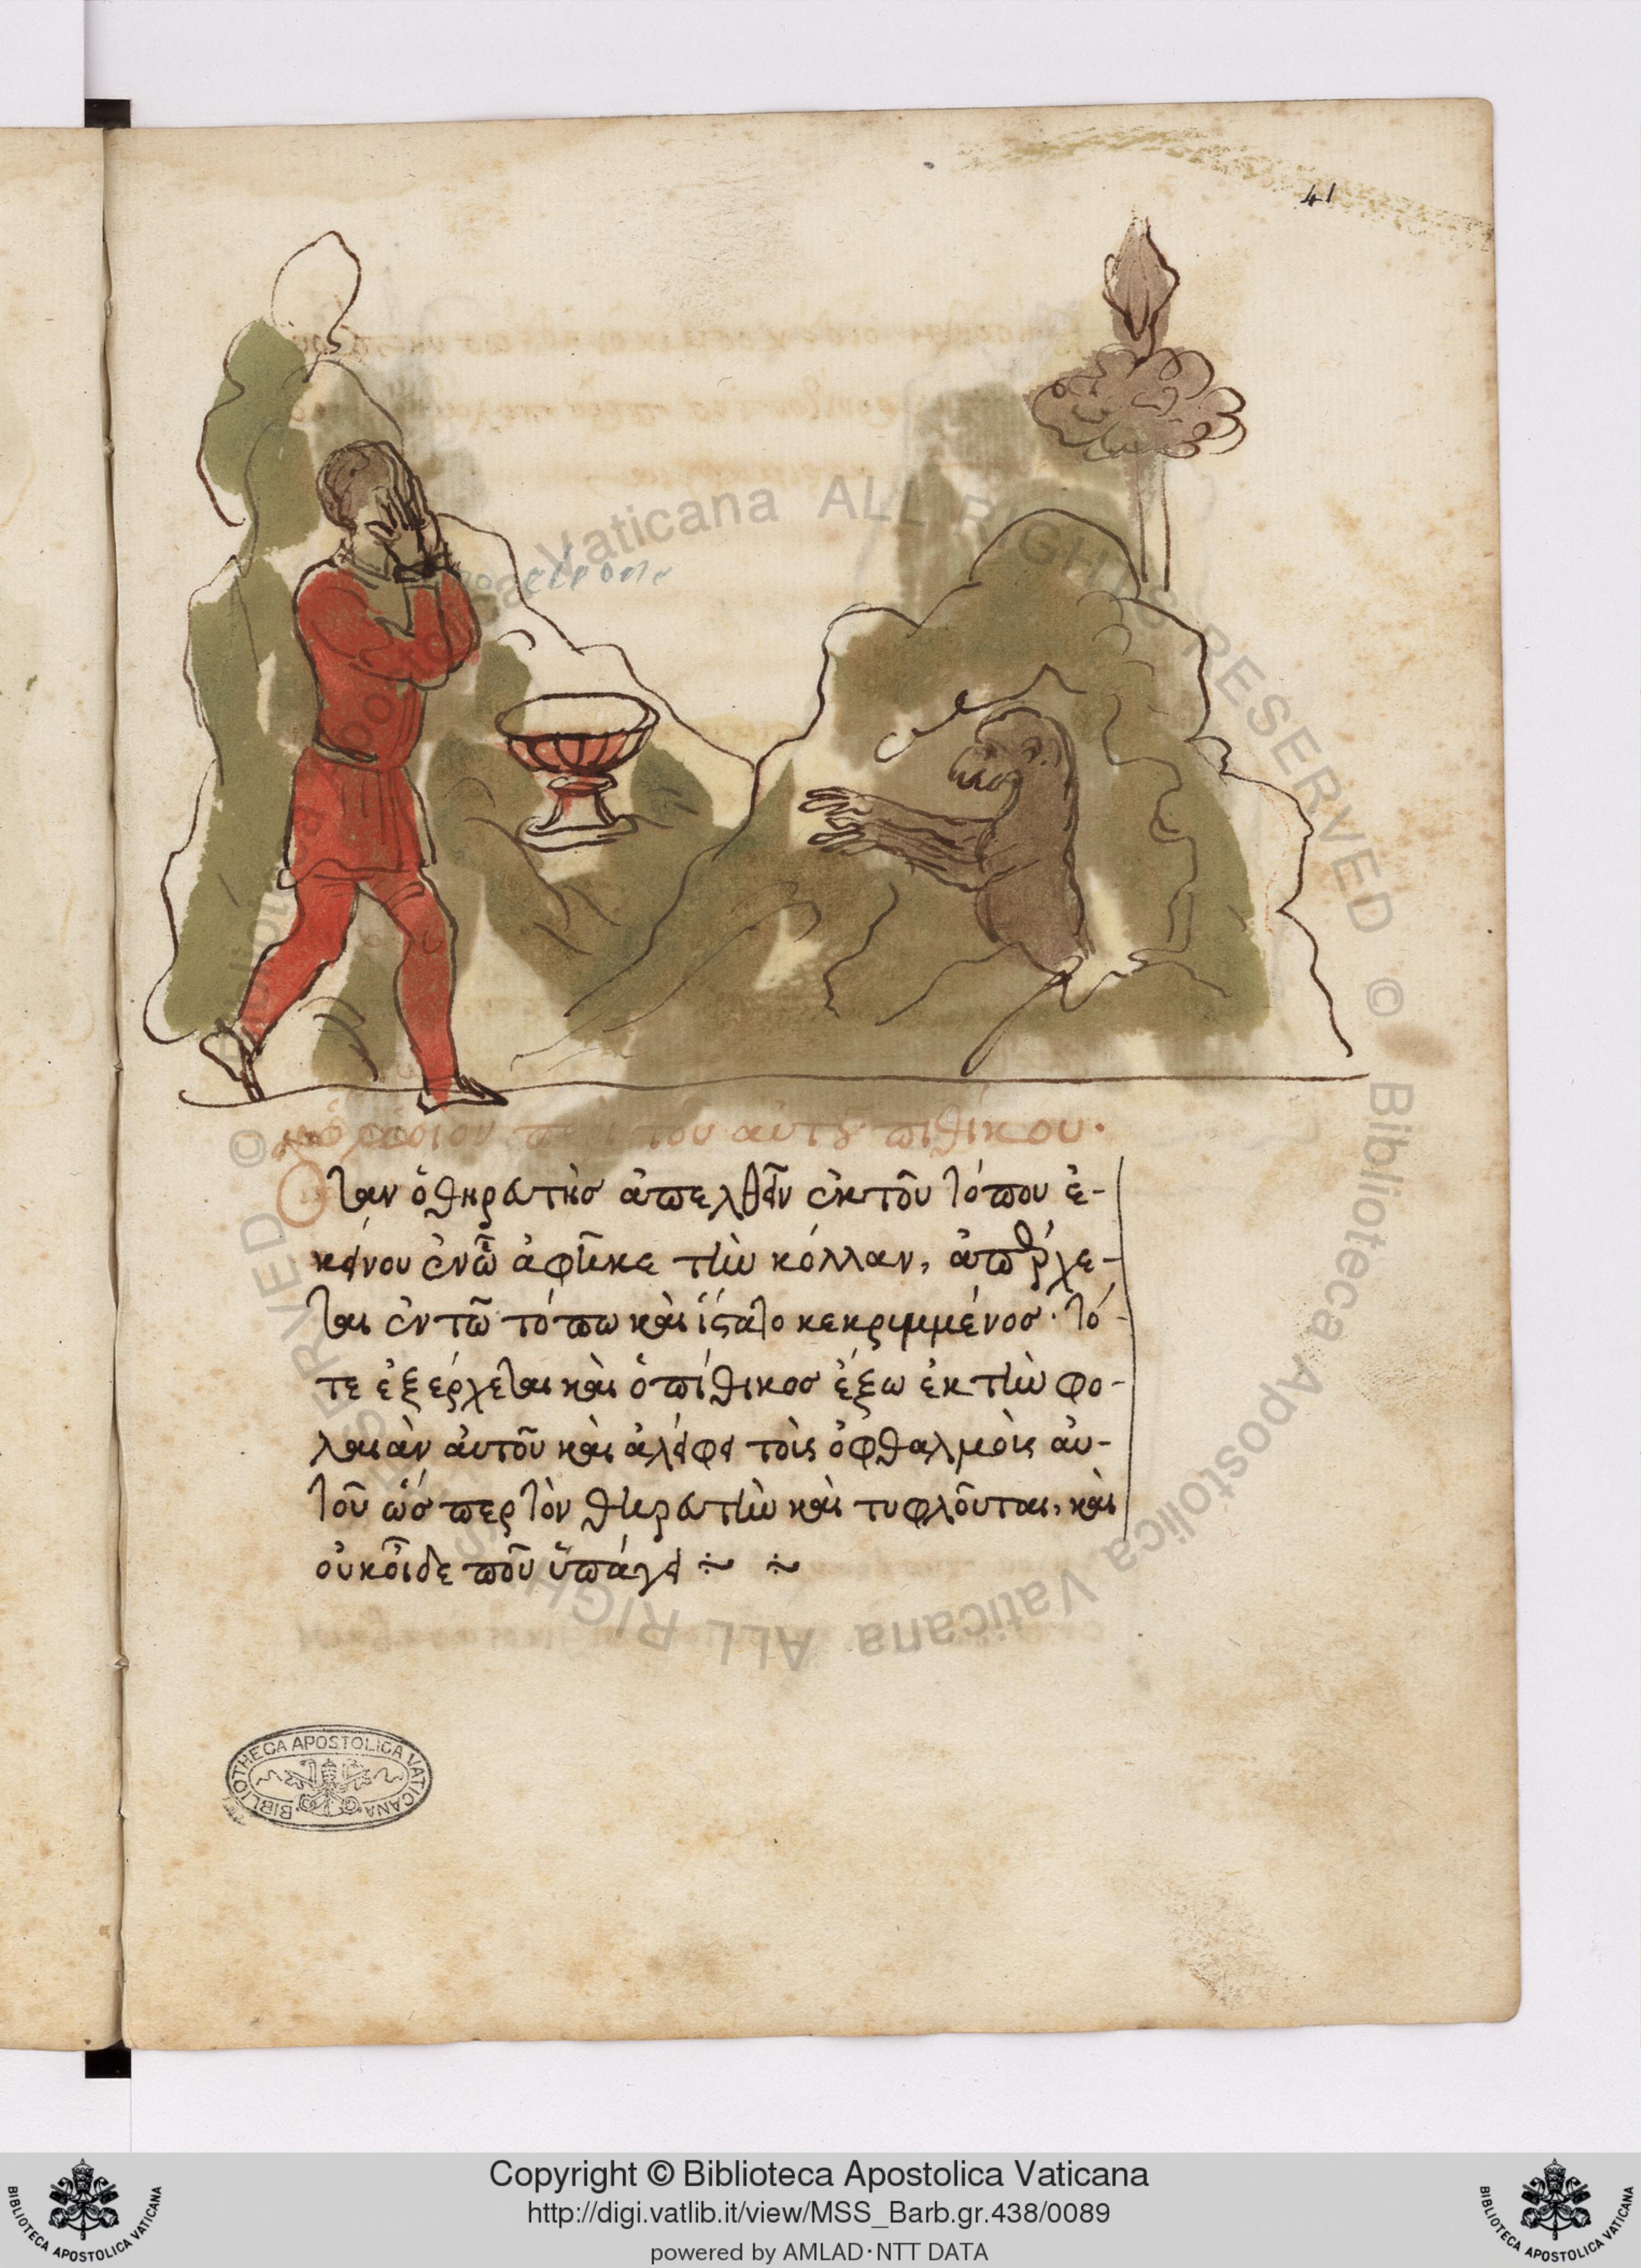 41
περὶ τοῦ αὐτȣ πιθίκου·
Ὅταν ὁ θηρατὴσ ἀπελθεῖν ἐκ τοῦ τόπου ἐ-
κείνου ἐν ὧ ἀφῖηκε τὴν κόλλαν, ἀπέρχε-
ται ἐν τῶ τόπω καὶ ἵσταιο κεκριμμένοσ· τό-
τε ἐξέρχεται καὶ ὁ πίθικοσ ἔξω ἐκ τὴν φο-
λαιὰν ἀυτοῦ καὶ ἀλείφει τοὶς ὀφθαλμοὶς ἀυ-
τοῦ ὥσπερ τὸν θηρατὴν καὶ τυφλοῦται, καὶ
οὐκ οἶδε ποῦ ὑπάγει
BIBLIOTHECA APOSTOLICA VATICANA
© Biblioteca Apostolica Vaticana ALL RIGHTS RESERVED
Copyright © Biblioteca Apostolica Vaticana
http://digi.vatlib.it/view/MSS_Barb.gr.438/0089
powered by AMLAD·NTT DATA
BIBLIOTECA APOSTOLICA VATICANA
BIBLIOTECA APOSTOLICA VATICANA